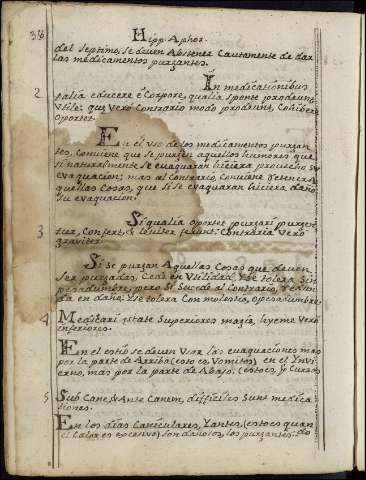 36
Hipp. Aphor.
del septimo, se deven Abstener Cautamente de dar
las medicamentos purgantes.
2 In medicationibus
talia educere è Corpore, qualia sponte prodeunt,
Utile: que Vero Contrario modo prodeunt, Cohibere
oportet.
En el uso de los medicamentos purgan-
tes, Conviene que se purgen aquellos humores que
si naturalmente se evaquaran hiciera provecho su
evaquacion; mas al Contrario, Conviene detener a-
quellas Cosas, que si se evaquaran hiciera daño
su evaquacion.
3 Si qualia oportet purgari purgen-
tur, Confert, & leviter ferunt: Contraria Vero
graviter.
Si se purgan Aquellas Cosas que deven
Ser purgadas, Cede en Utilidad, y se tolera Sin
pesadumbre, pero Si Sucede al Contrario, redun-
da en daño: y se tolera Con molestia, o pesadumbre.
4 Medicari æstate Superiores magis, hyeme Vero
inferiores.
En el estio se deven Usar las evaquaciones mas
por la parte de Arriba (esto es Vomitos) en el Ynvi-
erno, mas por la parte de Abajo. (esto es, y Cursos
5 Sub Cane, & Ante Canem, difficiles Sunt medica-
tiones.
En los dias Caniculares, y antes, (esto es quan-
el Calor es excesivo) son dañosos, los purgantes. do